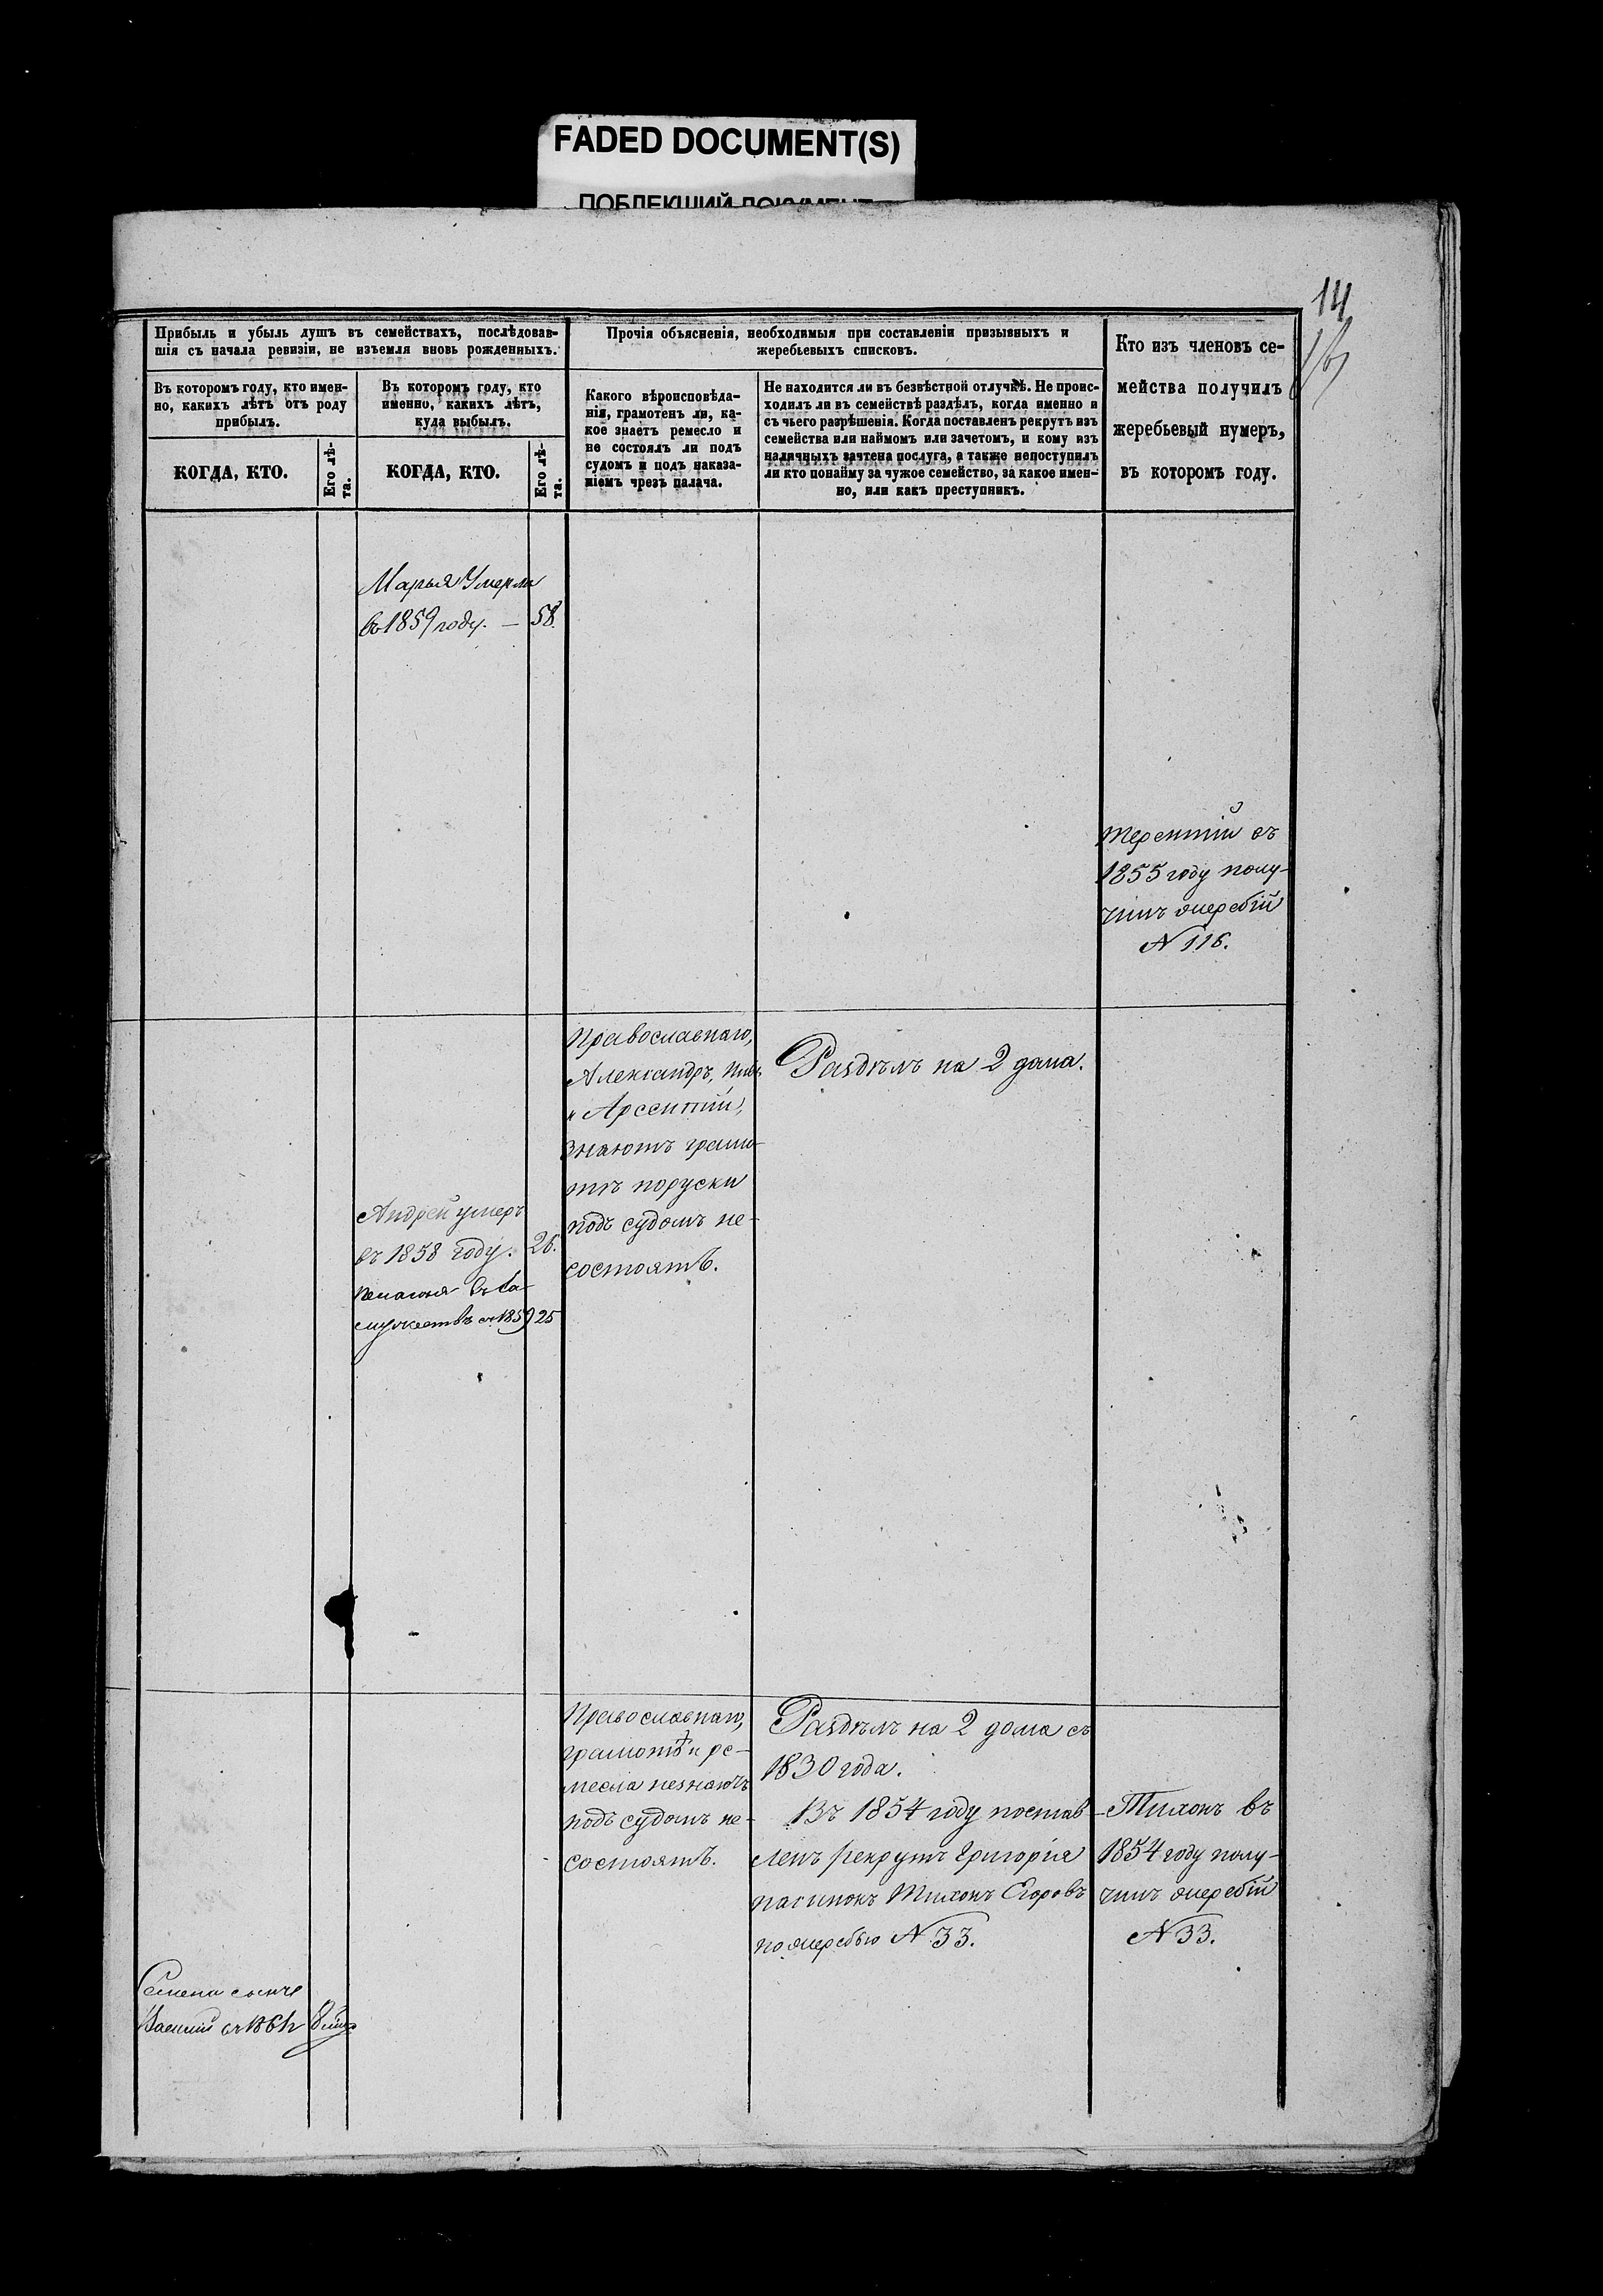 FADED DOCUMENT(S)
ПОБЛЕКШИЙ ДОКУМЕНТ
14
Прибыль и убыль душъ въ семействахъ, послѣдовав-
шія съ начала ревизіи, не изъемля вновь рожденныхъ.
Въ которомъ году, кто имен-
но, какихъ лѣтъ отъ роду
прибылъ.
КОГДА, КТО.
Его лѣ-
та.
Въ которомъ году, кто
именно, какихъ лѣтъ,
куда выбылъ.
КОГДА, КТО.
Его лѣ-
та.
Прочія объясненія, необходимыя при составленіи призывныхъ и
жеребьевыхъ списковъ.
Какого вѣроисповѣда-
нія, грамотенъ ли, ка-
кое знаетъ ремесло и
не состоялъ ли подъ
судомъ и подъ наказа-
ніемъ чрезъ палача.
Не находится ли въ безвѣстной отлучкѣ. Не проис-
ходилъ ли въ семействѣ раздѣлъ, когда именно и
съ чьего разрѣшенія. Когда поставленъ рекрутъ изъ
семейства или наймомъ или зачетомъ, и кому изъ
наличныхъ зачтена послуга, а также непоступилъ
ли кто понайму за чужое семейство, за какое имен-
но, или какъ преступникъ.
Кто изъ членовъ се-
мейства получилъ
жеребьевый нумеръ,
въ которомъ году.
Марья Умерла
въ 1859 году. — 58.
Терентій въ
1855 году полу-
чилъ жеребій
N 116.
Православнаго,
Александръ,
и Арсентій,
знаютъ грамо-
тѣ поруски
подъ судомъ не-
состоятъ.
Раздѣлъ на 2 дома.
Андрей умеръ
въ 1858 году. 26.
въ За-
мужествѣ съ 1859 25
Православнаго,
грамотѣ и ре-
месла незнаютъ
подъ судомъ не-
состоятъ.
Раздѣлъ на 2 дома съ
1830 года.
Въ 1854 году постав-
ленъ рекрутъ Григорія
пасинокъ Тихонъ Егоровъ
по жеребью N 33.
Тихонъ въ
1854 году полу-
чилъ жеребій
N 33.
Семена сынъ
Василій съ